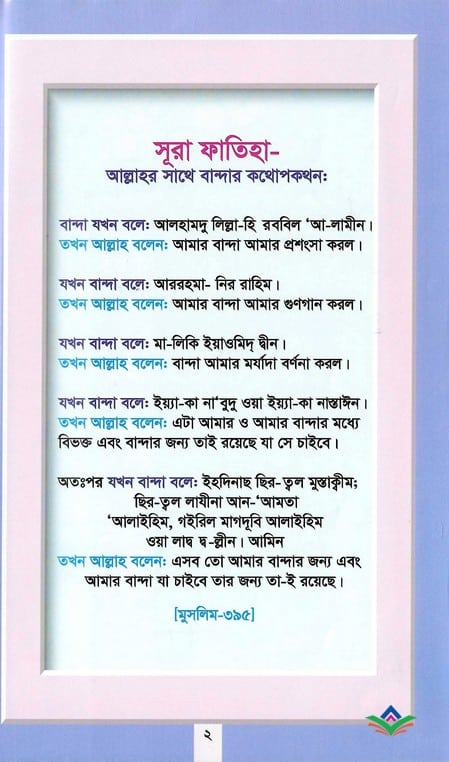 সূরা ফাতিহা-
আল্লাহর সাথে বান্দার কথোপকথন:
বান্দা যখন বলে: আলহামদু লিল্লা-হি রববিল ‘আ-লামীন।
তখন আল্লাহ বলেন: আমার বান্দা আমার প্রশংসা করল।
যখন বান্দা বলে: আররহমা- নির রাহিম।
তখন আল্লাহ বলেন: আমার বান্দা আমার গুণগান করল।
যখন বান্দা বলে: মা-লিকি ইয়াওমিদ্ দ্বীন।
তখন আল্লাহ বলেন: বান্দা আমার মর্যাদা বর্ণনা করল।
যখন বান্দা বলে: ইয়্যা-কা না‘বুদু ওয়া ইয়্যা-কা নাস্তাঈন।
তখন আল্লাহ বলেন: এটা আমার ও আমার বান্দার মধ্যে
বিভক্ত এবং বান্দার জন্য তাই রয়েছে যা সে চাইবে।
অতঃপর যখন বান্দা বলে: ইহদিনাছ ছির-ত্বল মুস্তাক্বীম;
ছির-ত্বল লাযীনা আন-‘আমতা
‘আলাইহিম, গইরিল মাগদূবি আলাইহিম
ওয়া লাদ্ব দ্ব-ল্লীন। আমিন
তখন আল্লাহ বলেন: এসব তো আমার বান্দার জন্য এবং
আমার বান্দা যা চাইবে তার জন্য তা-ই রয়েছে।
[মুসলিম-৩৯৫]
২